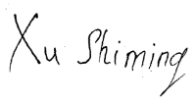 Xu Shiming